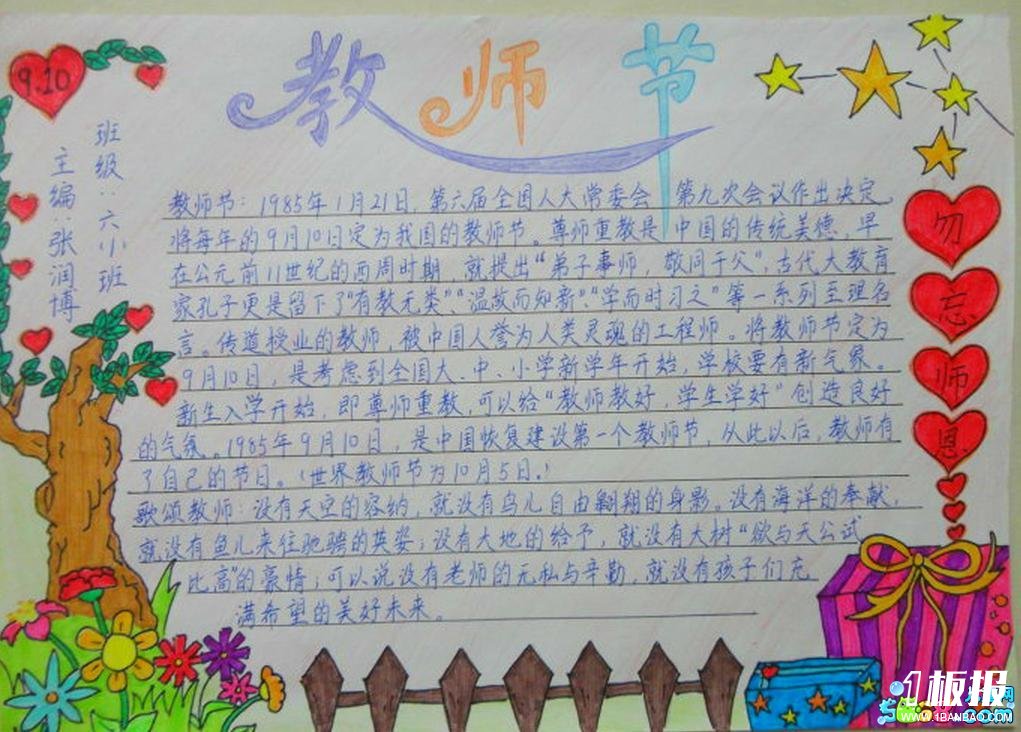 9.10
教师节
班级：六（1）班
主编：张润博
教师节：1985年1月21日，第六届全国人大常委会 第九次会议作出决定，
将每年的9月10日定为我国的教师节。尊师重教是中国的传统美德，早
在公元前11世纪的西周时期，就提出“弟子事师，敬同于父”，古代大教育
家孔子更是留下了“有教无类”、“温故而知新”、“学而时习之”等一系列至理名
言。传道授业的教师，被中国人誉为人类灵魂的工程师。将教师节定为
9月10日，是考虑到全国大、中、小学新学年开始，学校要有新气象。
新生入学开始，即尊师重教，可以给“教师教好，学生学好”创造良好
的气氛。1985年9月10日，是中国恢复建设第一个教师节，从此以后，教师有
了自己的节日。（世界教师节为10月5日。）
歌颂教师：没有天空的容纳，就没有鸟儿自由翱翔的身影。没有海洋的奉献，
就没有鱼儿来往驰骋的英姿；没有大地的给予，就没有大树“欲与天公试
比高”的豪情；可以说没有老师的无私与辛勤，就没有孩子们充
满希望的美好未来。
勿忘师恩
1板报
WWW.1BANBAO.COM